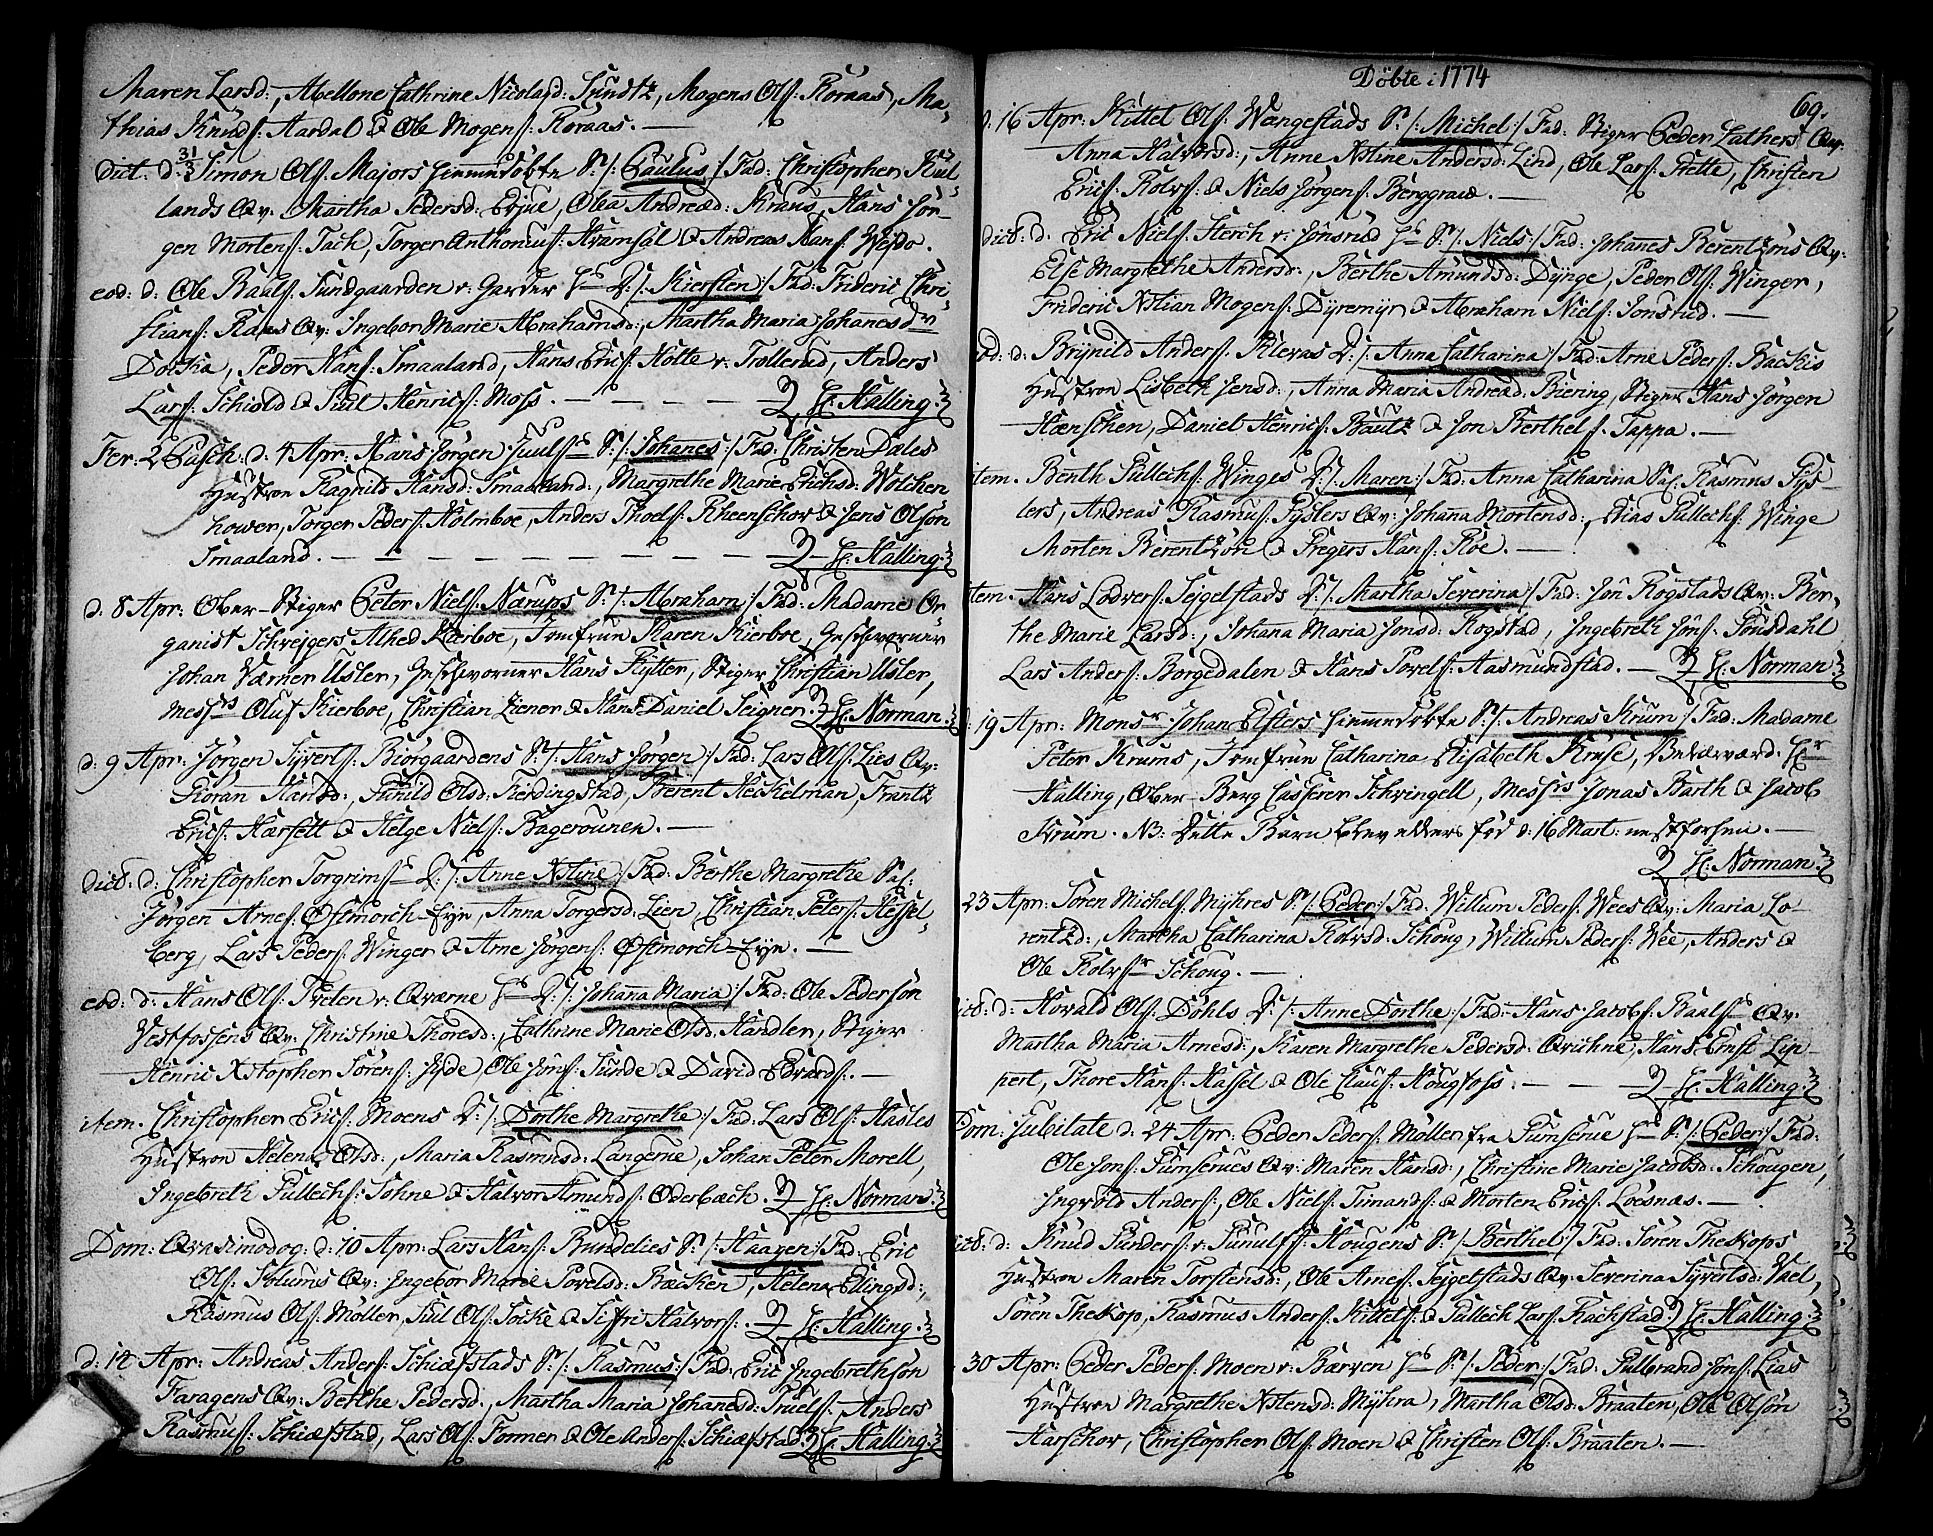 Maren Larsd:, Abellone Cathrine Nicolaid: Sundtz, Mogens Ols: Roraas, Ma-
thias Knuds: Aardal & Ole Mogens: Roraas. —
dict. d: 31/3 Simon Ols: Majors hiemmedöbte S: /: Paulus :/ Fad: Christopher
lands Qv: Martha Pedersd: Olea Andread: Krans, Hans Jör-
gen Mortens: Tach, Torger Anthonius: Kramsal & Andreas Hans: Wejdo.
eod: d: Ole Baals: Sundgaarden v: Garver D: /: Kiersten :/ Fad: Frideric Chri-
stians: Qv: Ingebor Marie Abrahamsd:, Martha Maria Johanesd:
Docka, Peder Hans: Smaaland, Hans Erics: Holte v: Trollerud, Anders
Lars: Schiold & Juul Henrics: Moss. — — — — — H: Halling.
Fer: 2 Pasch: d: 4 Apr: Hans Jörgen Juuls: S: /: Johanes :/ Fad: Christen Dales
Hustroe Ragnild Hansd: Smaaland:, Margrethe Marie Erichsd: Wolchen
hower, Torger Peders: Holmboe, Anders Thoels: Rheenschov & Jens Olsön
Smaaland. — — — — — — — — H: Halling.
d: 8 Apr: Ober-Stiger Peter Niels: Narups S: /: Abraham :/ Fad: Madame Or-
ganist Schrejgers Alhed Kierboe, Jomfrue Karen Kierboe, Geschworner
Johan Værner Usler, Geschworner Hans Rytter, Stiger Christian Usler,
Messrs Oluf Kierboe, Christian Ziener & Hans Daniel Seigner. H: Norman.
d: 9 Apr: Jörgen Syverts: Biörgaardens S: /: Hans Jörgen :/ Fad: Lars Ols: Lies Qv:
Göran Hansd:, Gunild Olsd: Fierdingstad, Berent Heickelman, Frantz
Erics: Harsett & Helge Niels: Bagerounen. —
dict: d: Christopher Torgrims: D: /: Anne Xstine :/ Fad: Berthe Margrethe Sal:
Jörgen Arnes: Ostmorch-Eyn, Anna Torgersd: Lien, Christian Peters: Hessel-
berg, Lars Peders: Winger & Arne Jörgens: Ostmorch-Eyn. —
eod: d: Hans Ols: Tveten v: Qværne D: /: Johana Maria :/ Fad: Ole Pedersön
Vestfossens Qv: Christine Thoresd:, Cathrine Marie Olsd: Kandler, Stiger
Henric Xstopher Sörens: Jyde, Ole Jöns: Sunde & David Edvards: —
item. Christopher Erics: Moens D: /: Dorthe Margrethe :/ Fad: Lars Ols: Hasles
Hustroe Helena Olsd:, Maria Rasmusd: Langerue, Johan Peter Morell,
Ingebreth Gullechs: Sohne & Halvor Amunds: Oderbæch. H: Norman.
Dom: Qvasimodog: d: 10 Apr: Lars Hans: Rundelies S: /: Haagen :/ Fad: Eric
Ols: Solums Qv: Ingebor Marie Povelsd: Bæcken, Helena Ellingsd:,
Rasmus Ols: Möller, Juul Ols: Socke & Siffri Halvors: H: Halling.
d: 14 Apr: Andreas Anders: Schiæfstads S: /: Rasmus :/ Fad: Eric Ingebrethsön
Faragens Qv: Berthe Pedersd:, Martha Maria Johanesd: Truels:, Anders
Rasmus: Schiæfstad, Lars Ols: Fonner & Ole Anders: Schiæfstad. H: Halling.
Döbte i 1774
69.
d: 16 Apr: Kittel Ols: Wængestads S: /: Michel :/ Fad: Stiger Peder Lathers Qv:
Anna Halvorsd:, Anne Xstine Andersd: Lind, Ole Lars: Stette, Christen
Erics: Rolvs: & Niels Jörgens: Berggrav. —
dict: d. Eric Niels: Sterch v: Jonsrud S: /: Niels :/ Fad: Johanes Berentzöns Qv:
Else Margrethe Andersd:, Berthe Amundsd: Dynge, Peder Ols: Winger,
Frideric Xstian Mogens: Dyremyr & Abraham Niels: Jonsrud. —
eod: d: Brynild Anders: Pilevas D: /: Anna Catharina :/ Fad: Arne Peders: Backis
Hustroe Lisbeth Jensd:, Anna Maria Andread: Biering, Stiger Hans Jörgen
Hænschen, Daniel Henrics: Bautz & Jon Berthels: Tappa. —
item. Benth Gullechs: Winges D: /: Maren :/ Fad: Anna Catharina Sal: Rasmus Gys-
lers, Andreas Rasmus: Gyslers Qv: Johana Mortensd:, Elias Gullechs: Winge
Morten Berentzön & Gregers Hans: Roe. —
item. Hans Lodvers: Sejgelstads D: /: Martha Severina :/ Fad: Jon Rogstads Qv: Ber-
the Marie Larsd:, Johana Maria Jonsd: Rogstad, Ingebreth Jöns: Gunsdahl
Lars Anders: Borgedalen & Hans Povels: Aasmundstad. — H: Norman.
d: 19 Apr: Monsr Johan Elsters hiemmedöbte S: /: Andreas Krum :/ Fad: Madame
Peter Krums, Jomfrue Catharina Elisabeth Kruse, Velærværd: Hr
Halling, Ober-Berg Casserer Schringell, Messrs Jonas Barth & Jacob
Krum. NB: Dette Barn blev ellers föd d: 16 Mart: nestforhen. —
H: Norman.
23 Apr: Sören Michels: Myhres S: /: Peder :/ Fad: Willum Peders: Wees Qv: Maria Lo-
rentzd:, Martha Catharina Rolvsd: Schoug, Willum Peders: Wee, Anders &
Ole Rolvs: Schoug. —
dict: d: Hovald Ols: Dohls D: /: Anne Dorthe :/ Fad: Hans Jacobs: Baals: Qv:
Martha Maria Arnesd:, Karen Margrethe Pedersd: Qvichne, Hans Ernst Lip-
pert, Thore Hans: Hassel & Ole Claus: Hougfoss. — — — H: Halling.
Dom: Jubilate d: 24 Apr: Peder Peders: Möller fra Gunserue S: /: Peder :/ Fad:
Ole Jons: Gunserues Qv: Maren Hansd:, Christine Marie Jacobsd: Schougen,
Ingvold Anders:, Ole Niels: Timands: & Morten Erics: Loesnæs. —
dict: d. Knud Gunders: v: Gunulfs: Hougens S: /: Berthel :/ Fad: Sören Theskops
Hustroe Maren Torstensd:, Ole Arnes: Sejgelstads Qv: Severina Syvertsd: Vael,
Sören Theskop, Rasmus Anders: Kittels: & Gullech Lars: Rachstad. H: Halling.
30 Apr: Peder Peders: Moen v: Barven S: /: Peder :/ Fad: Gulbrand Jons: Lias
Hustroe Margrethe Xstensd: Myhra, Martha Olsd: Braaten, Ole Olsön
Harschov, Christopher Ols: Moen & Christen Ols: Braaten. —